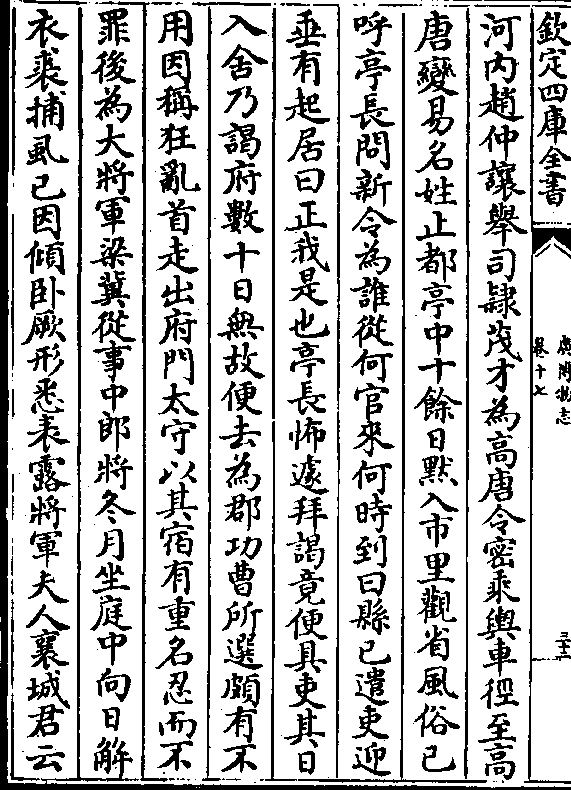 欽定四庫全書
廣博物志
卷十七
三十二
河内趙仲讓舉司隸茂才為高唐令密乘輿車徑至高
唐變易名姓止都亭中十餘日黙入市里觀省風俗已
呼亭長問新令為誰從何官來何時到曰縣已遣吏迎
垂有起居曰正我是也亭長怖遽拜謁竟便具吏其日
入舍乃謁府數十日無故便去為郡功曹所選頗有不
用因稱狂亂首走出府門太守以其宿有重名忍而不
罪後為大將軍梁冀從事中郎將冬月坐庭中向日解
衣裘捕虱已因傾卧厥形悉表露將軍夫人襄城君云